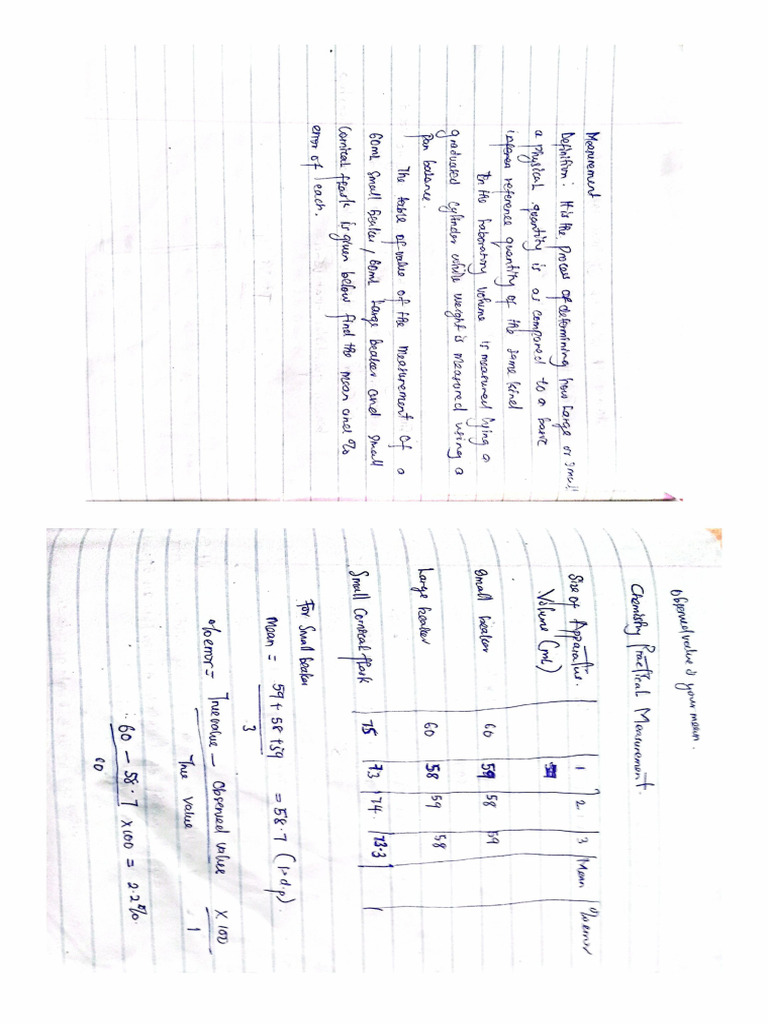 Measurement
Definition: It is the process of determining how large or small
a physical quantity is as compared to a basic
reference quantity of the same kind
In the laboratory volume is measured using a
graduated cylinder while weight is measured using a
Pan balance.
The table of value of the measurement of a
60ml small beaker, 60ml large beaker and small
Comical flask is given below find the mean and %
error of each.
Observed value is your mean.
Chemistry Practical Measurement.
Size of Apparatus. 1 2 3 Mean %error
Volume (mL)
Small beaker 60 59 58 59
Large beaker 60 58 59 58
Small Comical flask 75 73 74. 73.3
For Small beaker
Mean = 59 + 58 + 59 / 3 = 58.7 (1 d.p).
% error = True value - Observed value / True value × 100 / 1
∴ 60 - 58.7 / 60 × 100 = 2.2%.